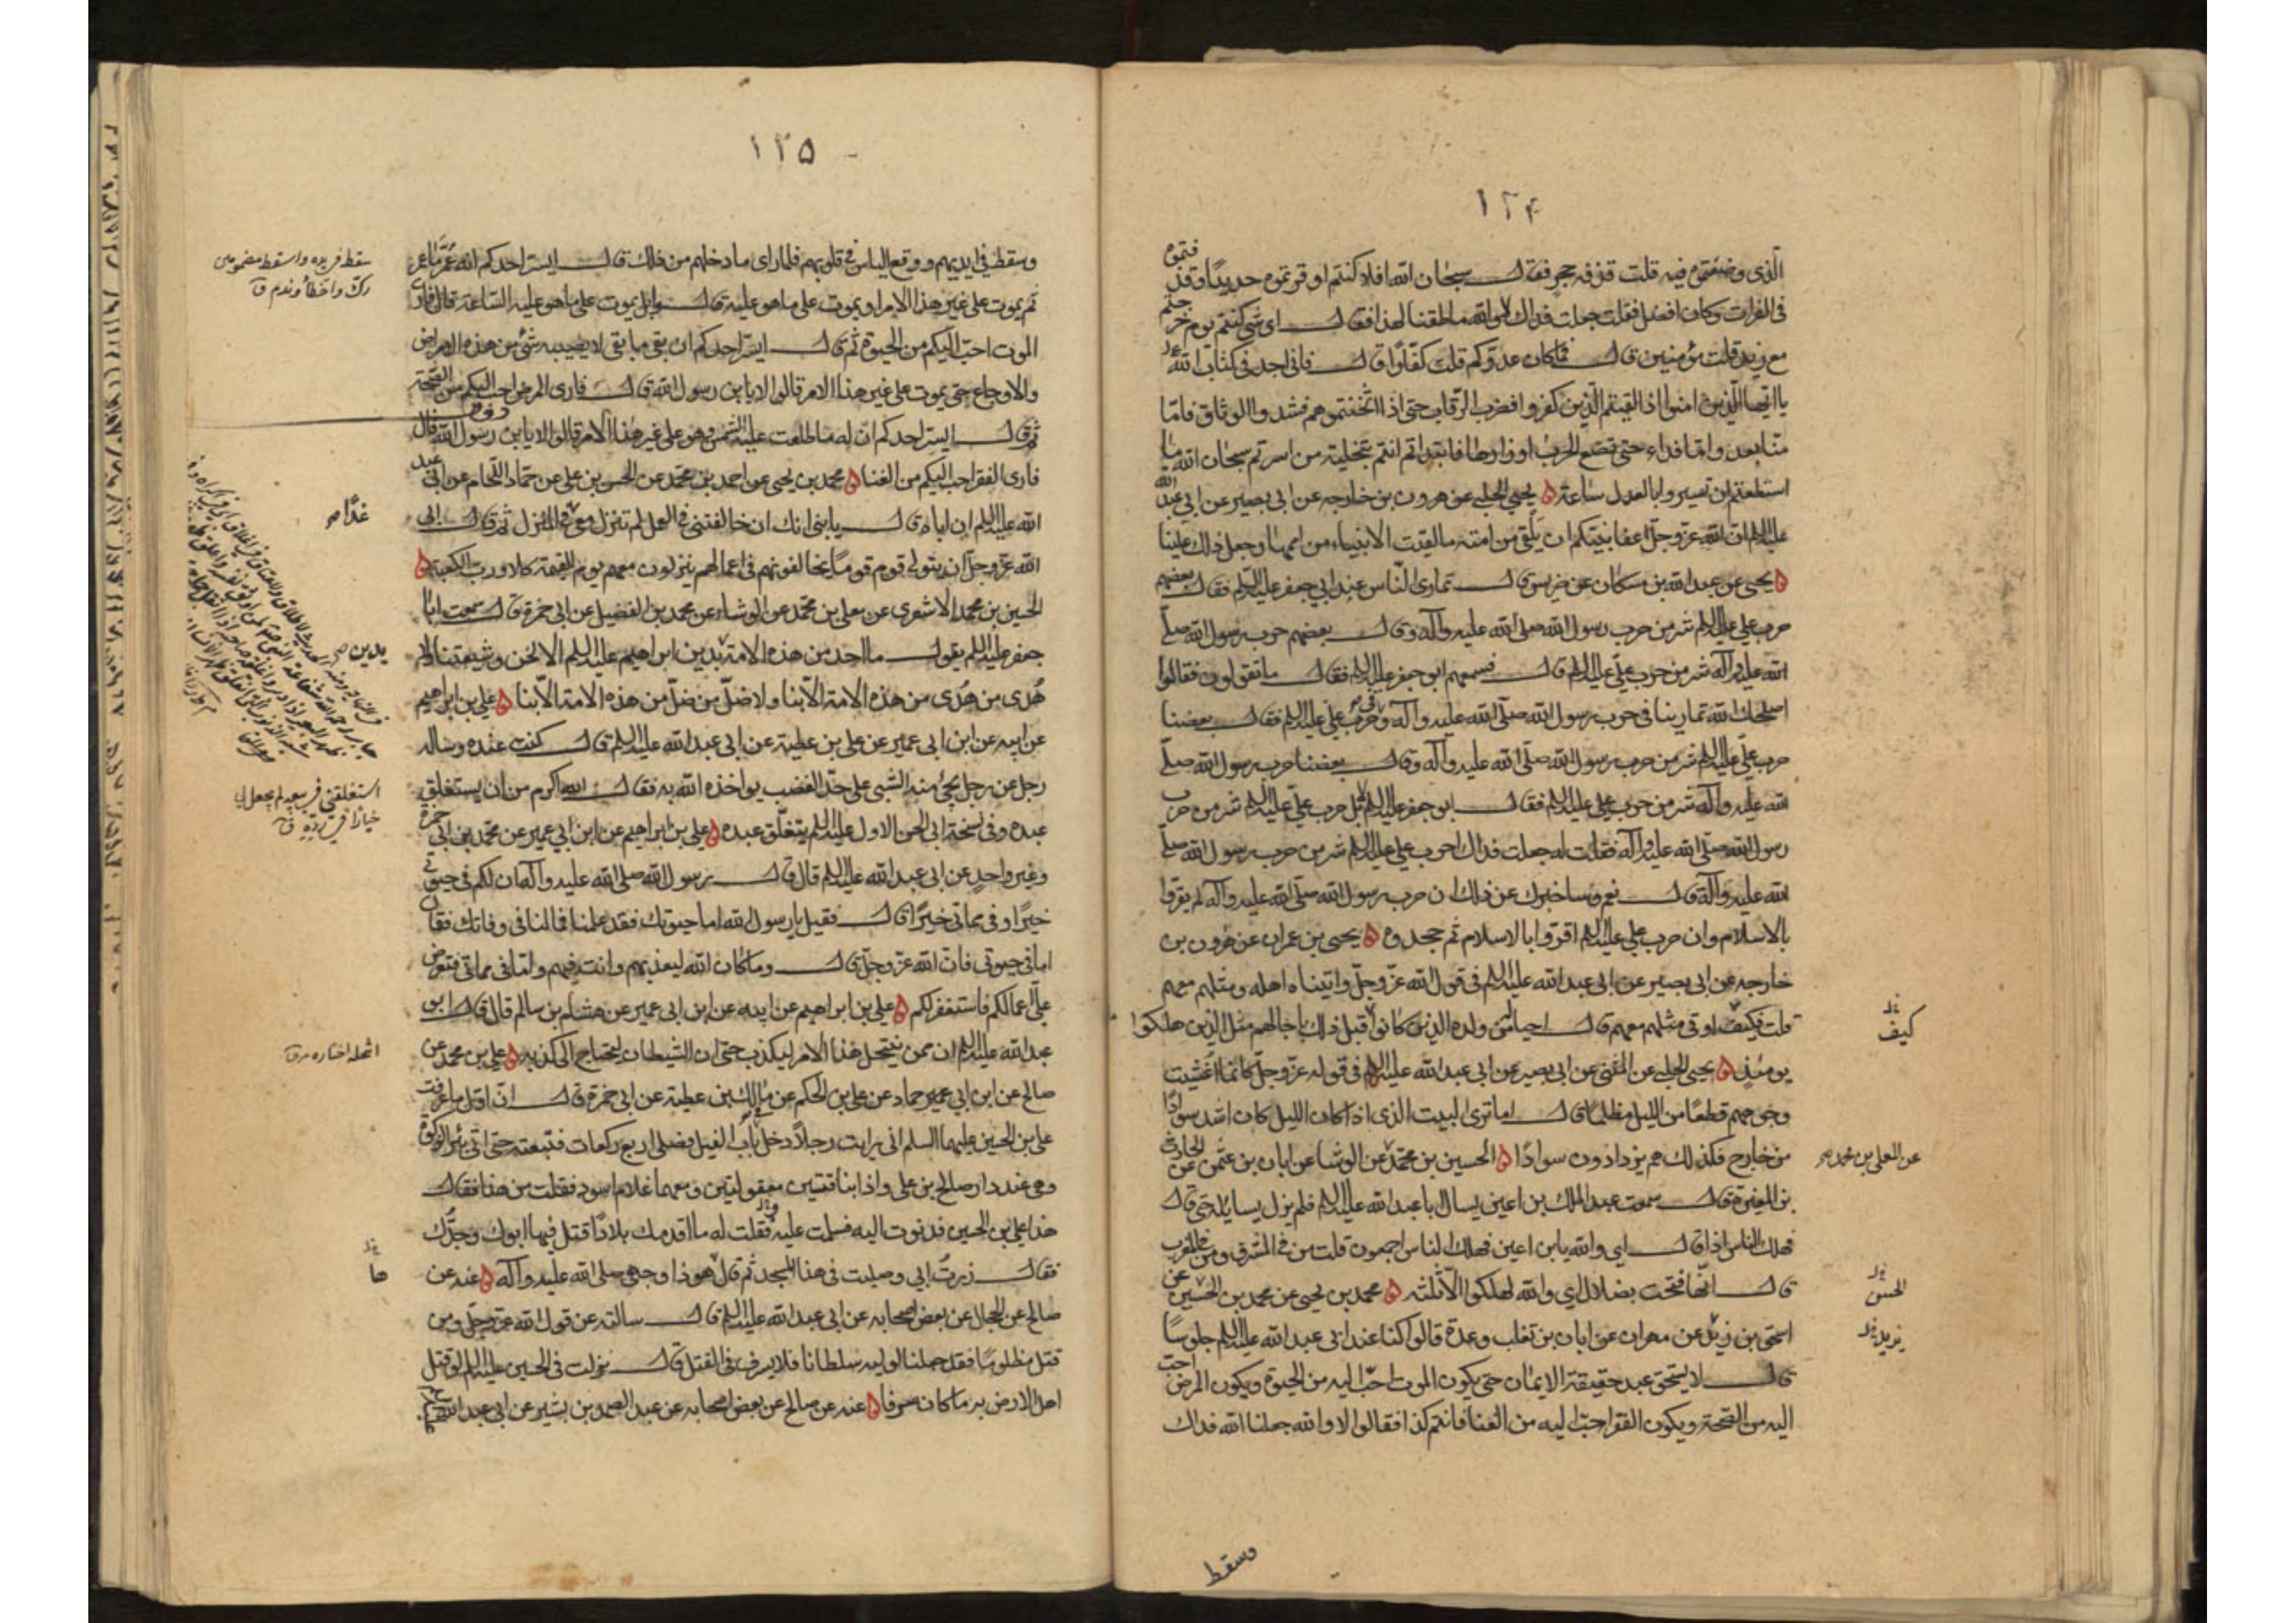 ١٢٤
الّذي وضعتموه فيه قلت قذفه حجر فقال سبحان الله افلا كنتم اوقرتموه حديدًا وقذفتموه
في الفرات وكان افضل فقلت جعلت فداك لا والله ما طقنا لهذا فقال اي شي كنتم يوم خرجتم
مع زيد قلت مؤمنين قال فما كان عدوّكم قلت كفّارًا قال فاني اجد في كتاب الله عز
يا ايّها الّذين امنوا اذا لقيتم الّذين كفروا فضرب الرّقاب حتى اذا اثخنتموهم فشدوا الوثاق فامّا
منّا بعد وامّا فداء حتى تضع الحرب اوزارها فابتدأتم انتم بتخلية من اسرتم سبحان الله ما
استطعتم ان تسيروا بالعدل ساعة يحيى الحلبي عن هرون بن خارجه عن ابي بصير عن ابي عبد الله
عليه السلم انّ الله عز وجلّ اعفا نبيّكم ان يلقى من امته ما لقيت الانبياء من اممها وجعل ذلك علينا
يحيى عن عبد الله بن مسكان عن ضريس قال تمارى النّاس عند ابي جعفر عليه السّلم فقال بعضهم
حرب علي عليه السلم شر من حرب رسول الله صلى الله عليه وآله وقال بعضهم حرب رسول الله صلّى
الله عليه وآله شر من حرب عليّ عليه السلم قال فسمعهم ابو جعفر عليه السلم فقال ما تقولون فقالوا
اصلحك الله تمارينا في حرب رسول الله صلّى الله عليه وآله وفي حرب علي عليه السلم فقال بعضنا
حرب عليّ عليه السلم شر من حرب رسول الله صلّى الله عليه وآله وقال بعضنا حرب رسول الله صلّى
الله عليه وآله شر من حرب علي عليه السلم فقال ابو جعفر عليه السلم لا بل حرب عليّ عليه السلم شر من حرب
رسول الله صلّى الله عليه وآله فقلت له جعلت فداك احرب علي عليه السلم شر من حرب رسول الله صلّى
الله عليه وآله قال نعم وساخبرك عن ذلك ان حرب رسول الله صلّى الله عليه وآله لم يقرّوا
بالاسلام وان حرب علي عليه السلم اقرّوا بالاسلام ثم جحدوه يحيى بن عمران عن هرون بن
خارجه عن ابي بصير عن ابي عبد الله عليه السلم في قول الله عزّ وجلّ واتيناه اهله ومثلهم معهم
قلت فكيف اوتي مثلهم معهم قال احيا له من ولده الذين كانوا قبل ذلك باجالهم مثل الّذين هلكوا
كيف
يومئذٍ يحيى الحلبي عن المثنى عن ابي بصير عن ابي عبد الله عليه السلم في قوله عزّ وجلّ كانما اغشيت
وجوههم قطعًا من الليل مظلمًا قال اما ترى البيت الذي اذا كان الليل كان اشد سوادًا
من خارج فكذلك هم يزدادون سوادًا الحسين بن محمّد عن الوشا عن ابان بن عثمن عن الحارث
عن المعلى بن محمد صح
بن المغيرة قال سمعت عبد الملك بن اعين يسال ابا عبد الله عليه السلم فلم يزل يسايله حتى قال
فهلك الناس اذا قال اي والله يا بن اعين فهلك النّاس اجمعون قلت من في المشرق ومن في المغرب
قال انّها فتحت بضلال اي والله لهلكوا الّا ثلثه محمد بن يحيى عن محمد بن الحسين عن
الحسن
اسحق بن يزيد عن مهران عن ابان بن تغلب وعدة قالوا كنا عند ابي عبد الله عليه السلم جلوسًا
يزيد
قال لا يستحق عبد حقيقة الايمان حتى يكون الموت احبّ اليه من الحيوة ويكون المرض احبّ
اليه من الصّحة ويكون الفقر احبّ اليه من الغنا فانتم كذا فقالوا لا والله جعلنا الله فداك
وسقط
١٢٥
وسقط في ايديهم ووقع الياس في قلوبهم فلمّا راى ما دخلهم من ذلك قال ايسرّ احدكم انه عمّر ما عمّر
سقط في يده واسقط مضمومتين
زلّ واخطأ وندم ق
ثم يموت على غير هذا الامر او يموت على ما هو عليه قالوا بل يموت على ما هو عليه السّاعة قال فارى
الموت احبّ اليكم من الحيوة ثم قال ايسرّ احدكم ان بقي ما بقي لا يصيبه شيء من هذه الامراض
والاوجاع حتى يموت على غير هذا الامر قالوا لا يا بن رسول الله قال فارى المرض احب اليكم من الصّحة
ثم قال ايسر احدكم ان له ما طلعت عليه الشمس وهو على غير هذا الامر قالوا لا يا بن رسول الله قال
فارى الفقر احب اليكم من الغنا محمد بن يحيى عن احمد بن محمّد عن الحسن بن علي عن حمّاد اللّحام عن ابي عبد
الله عليه السلم ان اباه قال يا بني انك ان خالفتني في العمل لم تنزل معي في المنزل ثم قال ابى
غدًا صح
الله عز وجلّ ان يتولى قوم قومًا يخالفونهم في اعمالهم ينزلون معهم يوم القيمة كلا ورب الكعبة
الحسين بن محمد الاشعري عن معلى بن محمّد عن الوشاء عن محمد بن الفضيل عن ابي حمزة قال سمعت ابا
جعفر عليه السلم يقول ما احد من هذه الامة يدين بدين ابراهيم عليه السلم الا نحن وشيعتنا ولا
هُدى من هُدى من هذه الامة الّا بنا ولا ضلّ من ضلّ من هذه الامة الّا بنا علي بن ابراهيم
عن ابيه عن ابن ابي عمير عن علي بن عطية عن ابي عبد الله عليه السلم قال كنت عنده وساله
رجل عن رجل يجيء منه الشيء على حدّ الغضب يواخذه الله به فقال الله اكرم من ان يستغلق
استغلقني في بيعه لم يجعل لي
خيارًا في ردّه ق
عبده وفي نسخة ابي الحسن الاول عليه السلم يستغلق عبده علي بن ابراهيم عن ابن ابي عمير عن محمّد بن ابي حمزة
وغير واحد عن ابي عبد الله عليه السلم قال قال رسول الله صلى الله عليه وآله ان لكم في حيوتي
خيرًا وفي مماتي خيرًا قال فقيل يا رسول الله اما حيوتك فقد علمنا فما لنا في وفاتك فقال
اما في حيوتي فان الله عزّ وجلّ قال وما كان الله ليعذبهم وانت فيهم وامّا في مماتي فتعرض
عليّ اعمالكم فاستغفر لكم علي بن ابراهيم عن ابيه عن ابن ابي عمير عن هشام بن سالم قال قال ابو
عبد الله عليه السلم ان ممن ينتحل هذا الامر ليكذب حتى ان الشيطان ليحتاج الى كذبه علي بن محمد عن
صالح عن ابن ابي عمير حماد عن علي بن الحكم عن مالك بن عطية عن ابي حمزة قال انّ اول ما عرفت
علي بن الحسين عليهما السلم اني رايت رجلًا دخل من باب الفيل فصلى اربع ركعات فتبعته حتى اتى بئر الزكوة
وهي عند دار صالح بن علي واذا بناقتين معقولتين ومعهما غلام اسود فقلت من هذا فقال
هذا علي بن الحسين فدنوت اليه فسلمت عليه وقلت له ما اقدمك بلادًا قتل فيها ابوك وجدّك
فقال زرت ابي وصليت في هذا المسجد ثم قال هو ذا وجهي صلى الله عليه وآله عنه عن
ها
صالح عن الحجال عن بعض اصحابه عن ابي عبد الله عليه السلم قال سالته عن قول الله عز وجل ومن
قتل مظلومًا فقد جعلنا لوليه سلطانا فلا يسرف في القتل قال نزلت في الحسين عليه السلم لو قتل
اهل الارض به ما كان سرفا عنه عن صالح عن بعض اصحابه عن عبد الصمد بن بشير عن ابي عبد الله